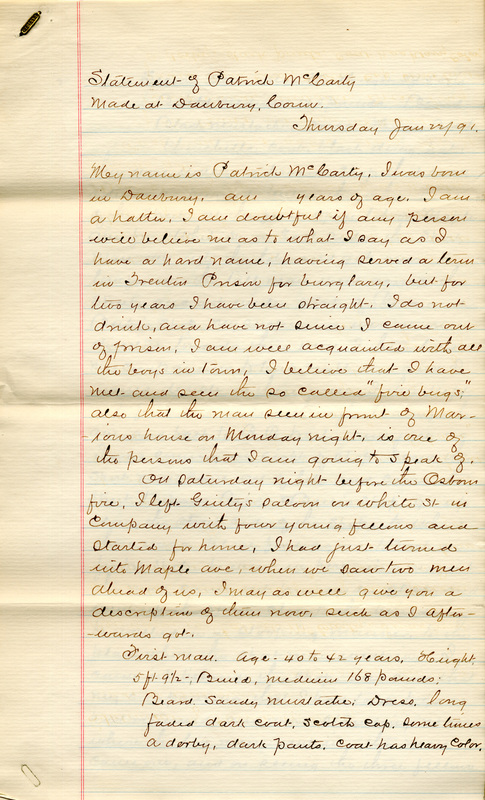 Statement of Patrick McCarty
Made at Danbury, Conn.
Thursday Jan 22/91.
My name is Patrick McCarty, I was born
in Danbury, am years of age. I am
a hatter. I am doubtful if any person
will believe me as to what I say as I
have a hard name, having served a term
in Trenton Prison for burglary, but for
two years I have been straight. I do not
drink, and have not since I came out
of prison, I am well acquainted with all
the boys in town, I believe that I have
met and seen the so called "fire bugs,"
also that the man seen in front of Mar-
-ions house on Monday night, is one of
the persons that I am going to speak of.
On Saturday night before the Osborn
fire, I left Ginty's saloon on White St in
Company with four young fellows and
started for home, I had just turned
into Maple ave, when we saw two men
ahead of us, I may as well give you a
description of them now, such as I after-
-wards got.
First man. Age - 40 to 42 years. Height,
5 ft 9½ -, Build, medium 168 pounds;
Beard. Sandy mustache; Dress. long
faded dark coat, Scotch cap. Some times
a derby, dark pants. Coat has heavy Color.